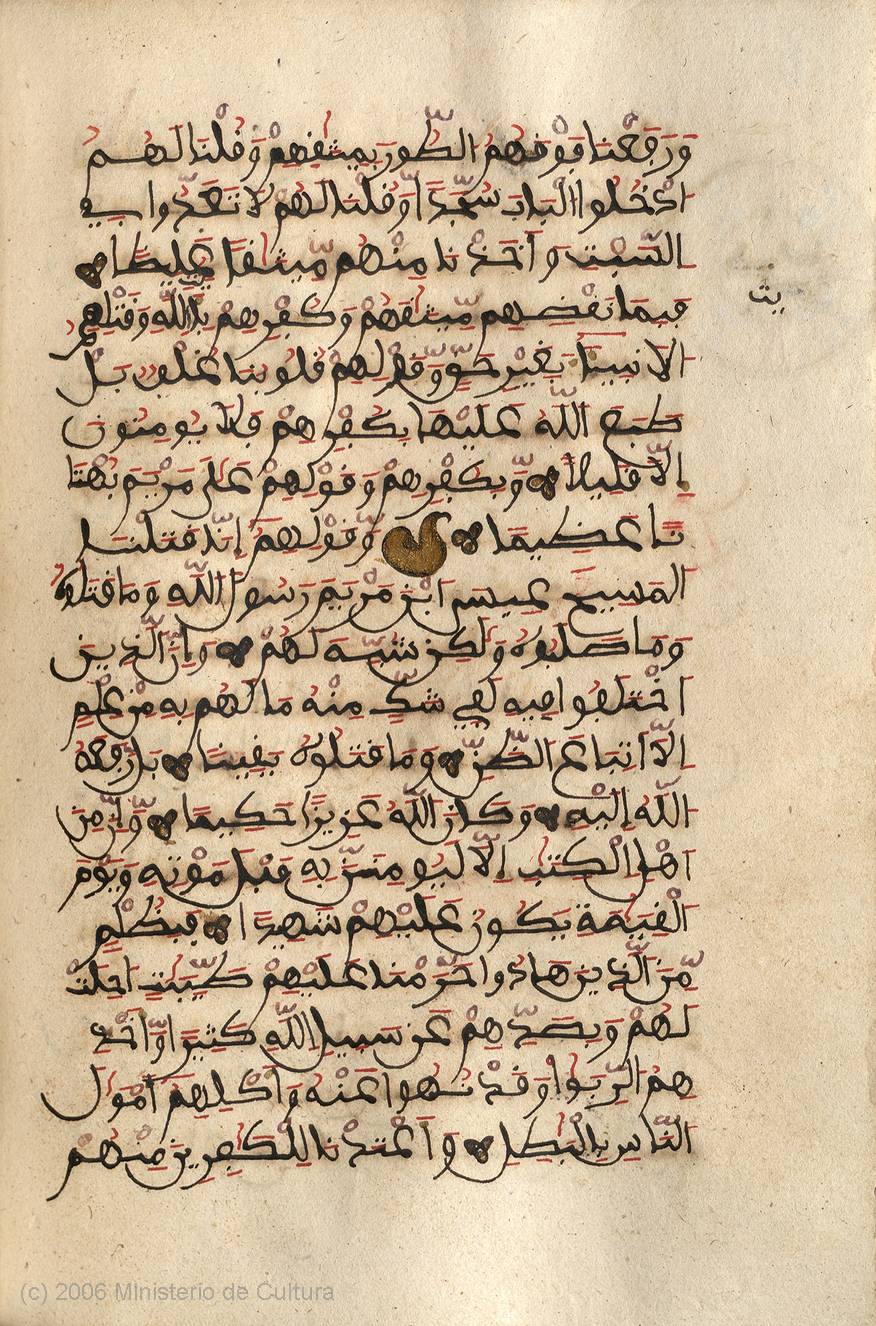 وَرَفَعْنَا فَوْقَهُمُ الطُّورَ بِمِيثَٰقِهِمْ وَقُلْنَا لَهُمُ
ادْخُلُوا الْبَابَ سُجَّدًا وَقُلْنَا لَهُمْ لَا تَعَدُّوا فِي
السَّبْتِ وَأَخَذْنَا مِنْهُم مِّيثَٰقًا غَلِيظًا
فَبِمَا نَقْضِهِم مِّيثَٰقَهُمْ وَكُفْرِهِم بِـَٔايَٰتِ اللَّهِ وَقَتْلِهِمُ
الْأَنْبِيَاءَ بِغَيْرِ حَقٍّ وَقَوْلِهِمْ قُلُوبُنَا غُلْفٌ بَلْ
طَبَعَ اللَّهُ عَلَيْهَا بِكُفْرِهِمْ فَلَا يُومِنُونَ
إِلَّا قَلِيلًا وَبِكُفْرِهِمْ وَقَوْلِهِمْ عَلَىٰ مَرْيَمَ بُهْتَٰ
نًا عَظِيمًا وَقَوْلِهِمْ إِنَّا قَتَلْنَا
الْمَسِيحَ عِيسَى ابْنَ مَرْيَمَ رَسُولَ اللَّهِ وَمَا قَتَلُوهُ
وَمَا صَلَبُوهُ وَلَٰكِن شُبِّهَ لَهُمْ وَإِنَّ الَّذِينَ
اخْتَلَفُوا فِيهِ لَفِي شَكٍّ مِّنْهُ مَا لَهُم بِهِ مِنْ عِلْمٍ
إِلَّا اتِّبَاعَ الظَّنِّ وَمَا قَتَلُوهُ يَقِينًا بَل رَّفَعَهُ
اللَّهُ إِلَيْهِ وَكَانَ اللَّهُ عَزِيزًا حَكِيمًا وَإِن مِّنْ
أَهْلِ الْكِتَٰبِ إِلَّا لَيُومِنَنَّ بِهِ قَبْلَ مَوْتِهِ وَيَوْمَ
الْقِيَٰمَةِ يَكُونُ عَلَيْهِمْ شَهِيدًا فَبِظُلْمٍ
مِّنَ الَّذِينَ هَادُوا حَرَّمْنَا عَلَيْهِمْ طَيِّبَٰتٍ أُحِلَّتْ
لَهُمْ وَبِصَدِّهِمْ عَن سَبِيلِ اللَّهِ كَثِيرًا وَأَخْذِ
هِمُ الرِّبَوٰا وَقَدْ نُهُوا عَنْهُ وَأَكْلِهِمْ أَمْوَٰلَ
النَّاسِ بِالْبَٰطِلِ وَأَعْتَدْنَا لِلْكَٰفِرِينَ مِنْهُمْ
(c) 2006 Ministerio de Cultura